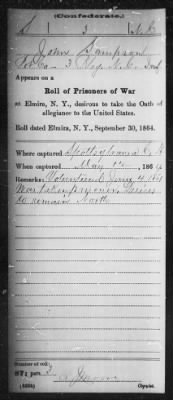 (Confederate.)
S 3 N.C.
John Sampson
Co. 3 Reg. N.C. Inf
Appears on a
Roll of Prisoners of War
at Elmira, N. Y., desirous to take the Oath of
allegiance to the United States.
Roll dated Elmira, N. Y., September 30, 1864.
Where captured Spottsylvania C. H.
When captured May 12, 1864
Remarks: Volunteered June 4, 1861
Desires
to remain North
Number of roll:
Copyist.